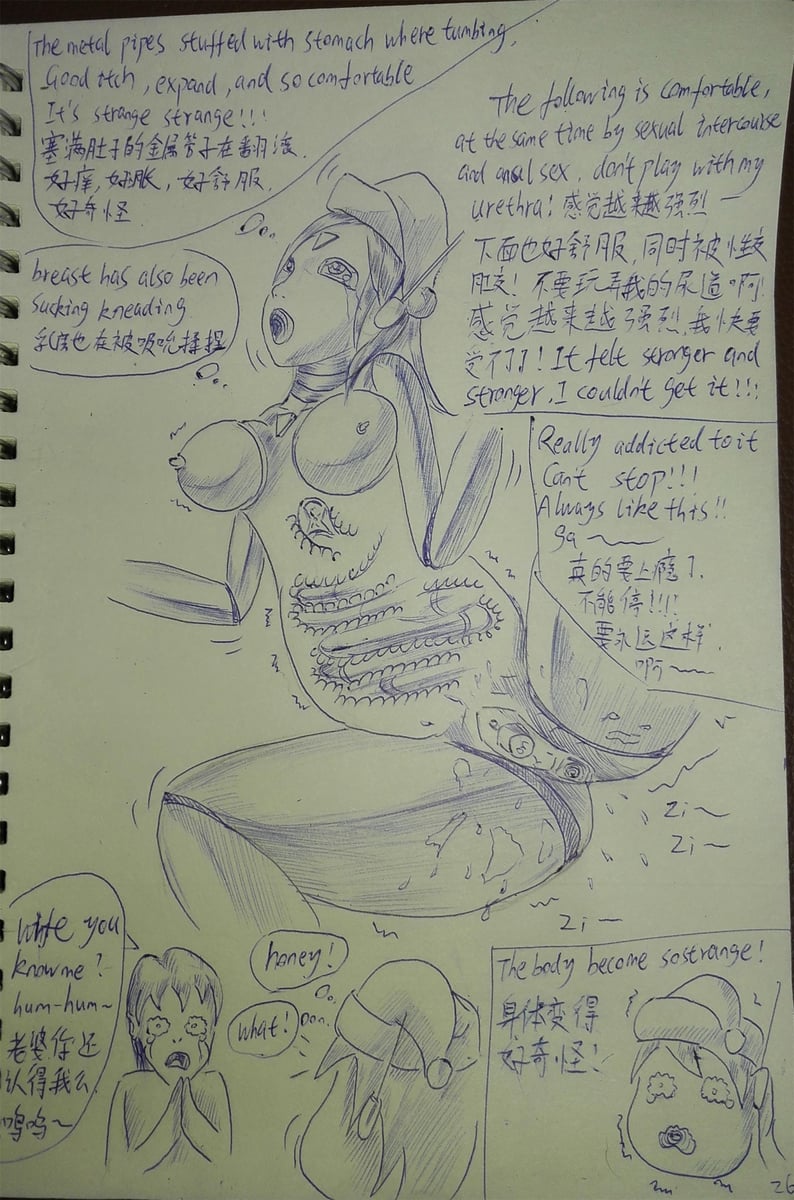 The metal pipes stuffed with stomach where tumbing,
Good itch, expand, and so comfortable
It's strange strange!!!
塞满肚子的金属管子在翻滚.
好痒,好胀,好舒服.
好奇怪
The following is comfortable,
at the same time by sexual intercourse
and anal sex, don't play with my
urethra! 感觉越来越强烈一
下面也好舒服,同时被性交
肛交!不要玩弄我的尿道啊!
感觉越来越强烈,我快要
受不了了! It felt stronger and
stronger, I couldn't get it!!!
breast has also been
sucking kneading.
乳房也在被吸吮揉捏
Really addicted to it
Cant stop!!!
Always like this!!
ga~
真的要上瘾了.
不能停!!!!
要永远这样.
啊~~
Zi~
Zi~
Zi~
Wife you
know me?
hum-hum~
老婆你还
认得我么
呜呜~
honey!
what!
The body become so strange!
身体变得
好奇怪!
26